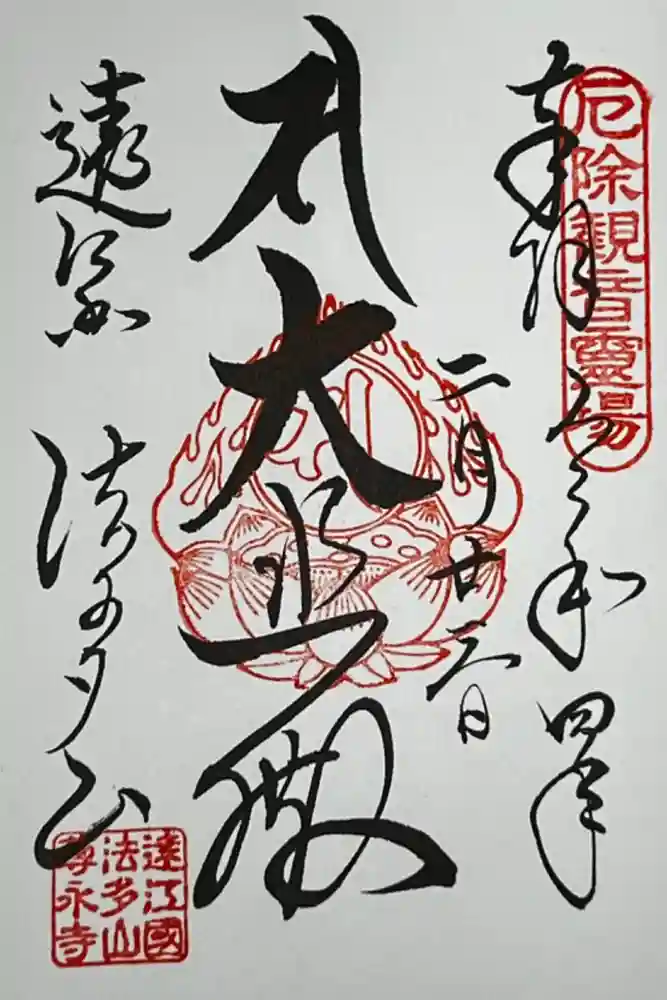 厄除観音靈場
奉拝
令和四年
二月廿 日
大悲殿
遠江国
法多山
遠江國
法多山
尊永寺